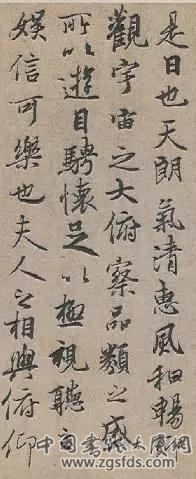 是日也天朗氣清惠風和暢仰
觀宇宙之大俯察品類之盛
所以遊目騁懷足以極視聽之
娛信可樂也夫人之相與俯仰
www.zgsfds.com